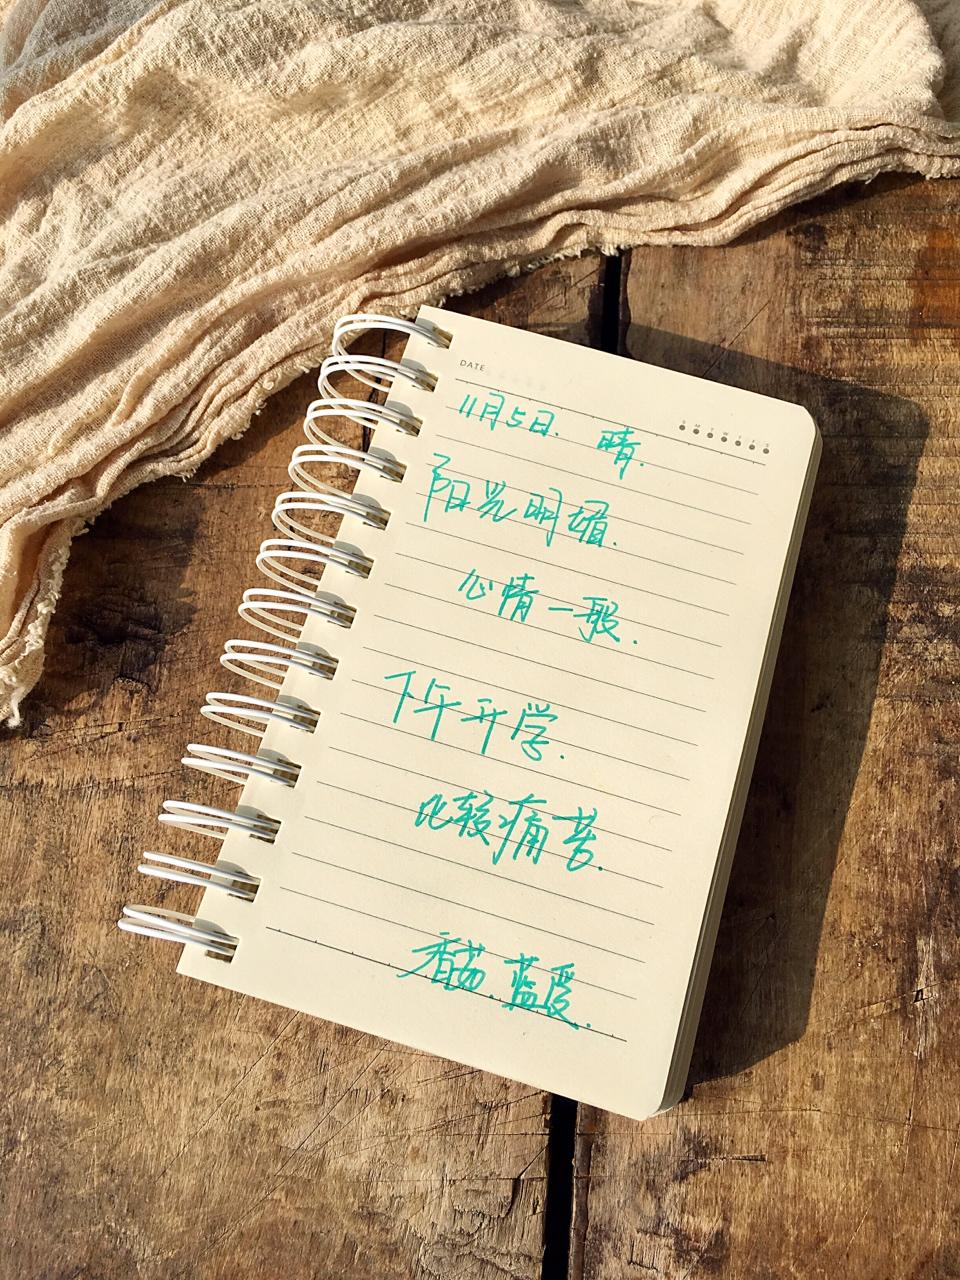 DATE
S M T W T F S
11月5日. 晴.
阳光明媚.
心情一般.
下午开学.
比较痛苦.
香菇.蓝瘦.